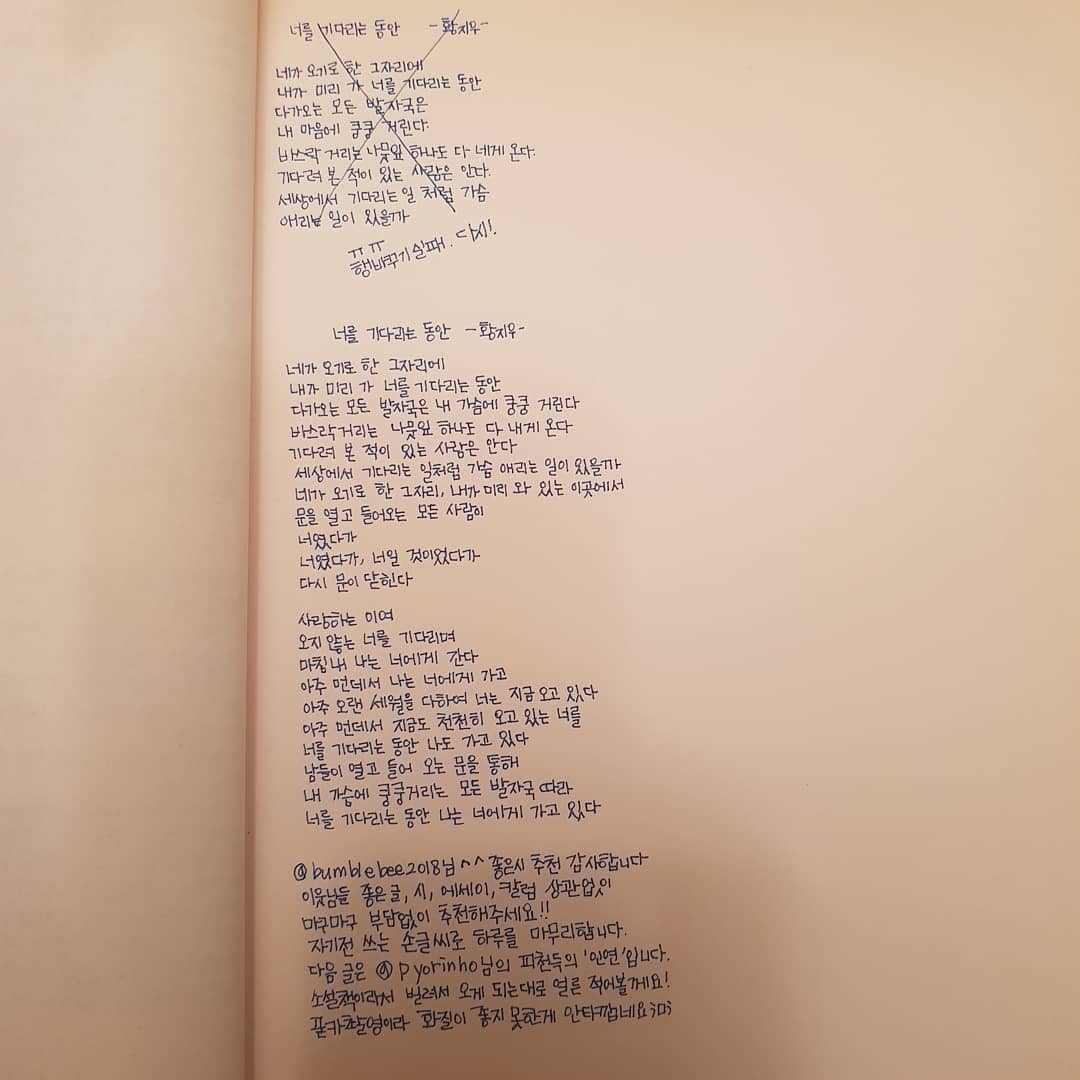 너를 기다리는 동안 -황지우-
네가 오기로 한 그자리에
내가 미리 가 너를 기다리는 동안
다가오는 모든 발자국은
내 마음에 쿵쿵 거린다.
바스락 거리는 나뭇잎 하나도 다 네게 온다.
기다려 본 적이 있는 사람은 안다.
세상에서 기다리는 일 처럼 가슴
애리는 일이 있을까
ㅠㅠ
행바꾸기 실패. 다시!
너를 기다리는 동안 -황지우-
네가 오기로 한 그자리에
내가 미리 가 너를 기다리는 동안
다가오는 모든 발자국은 내 가슴에 쿵쿵 거린다
바스락거리는 나뭇잎 하나도 다 내게 온다
기다려 본 적이 있는 사람은 안다
세상에서 기다리는 일처럼 가슴 애리는 일이 있을까
네가 오기로 한 그자리, 내가 미리 와 있는 이곳에서
문을 열고 들어오는 모든 사람이
너였다가
너였다가, 너일 것이었다가
다시 문이 닫힌다
사랑하는 이여
오지 않는 너를 기다리며
마침내 나는 너에게 간다
아주 먼데서 나는 너에게 가고
아주 오랜 세월을 다하여 너는 지금 오고 있다
아주 먼데서 지금도 천천히 오고 있는 너를
너를 기다리는 동안 나도 가고 있다
남들이 열고 들어 오는 문을 통해
내 가슴에 쿵쿵거리는 모든 발자국 따라
너를 기다리는 동안 나는 너에게 가고 있다
@bumblebee2018님^^ 좋은시 추천 감사합니다
이웃님들 좋은글, 시, 에세이, 칼럼 상관없이
마구마구 부담없이 추천해주세요!!
자기전 쓰는 손글씨로 하루를 마무리합니다.
다음 글은 @pyorinho님의 피천득의 '인연'입니다.
소설책이라서 빌려서 오게 되는대로 얼른 적어볼게요!
폰카촬영이라 화질이 좋지 못한게 안타깝네요